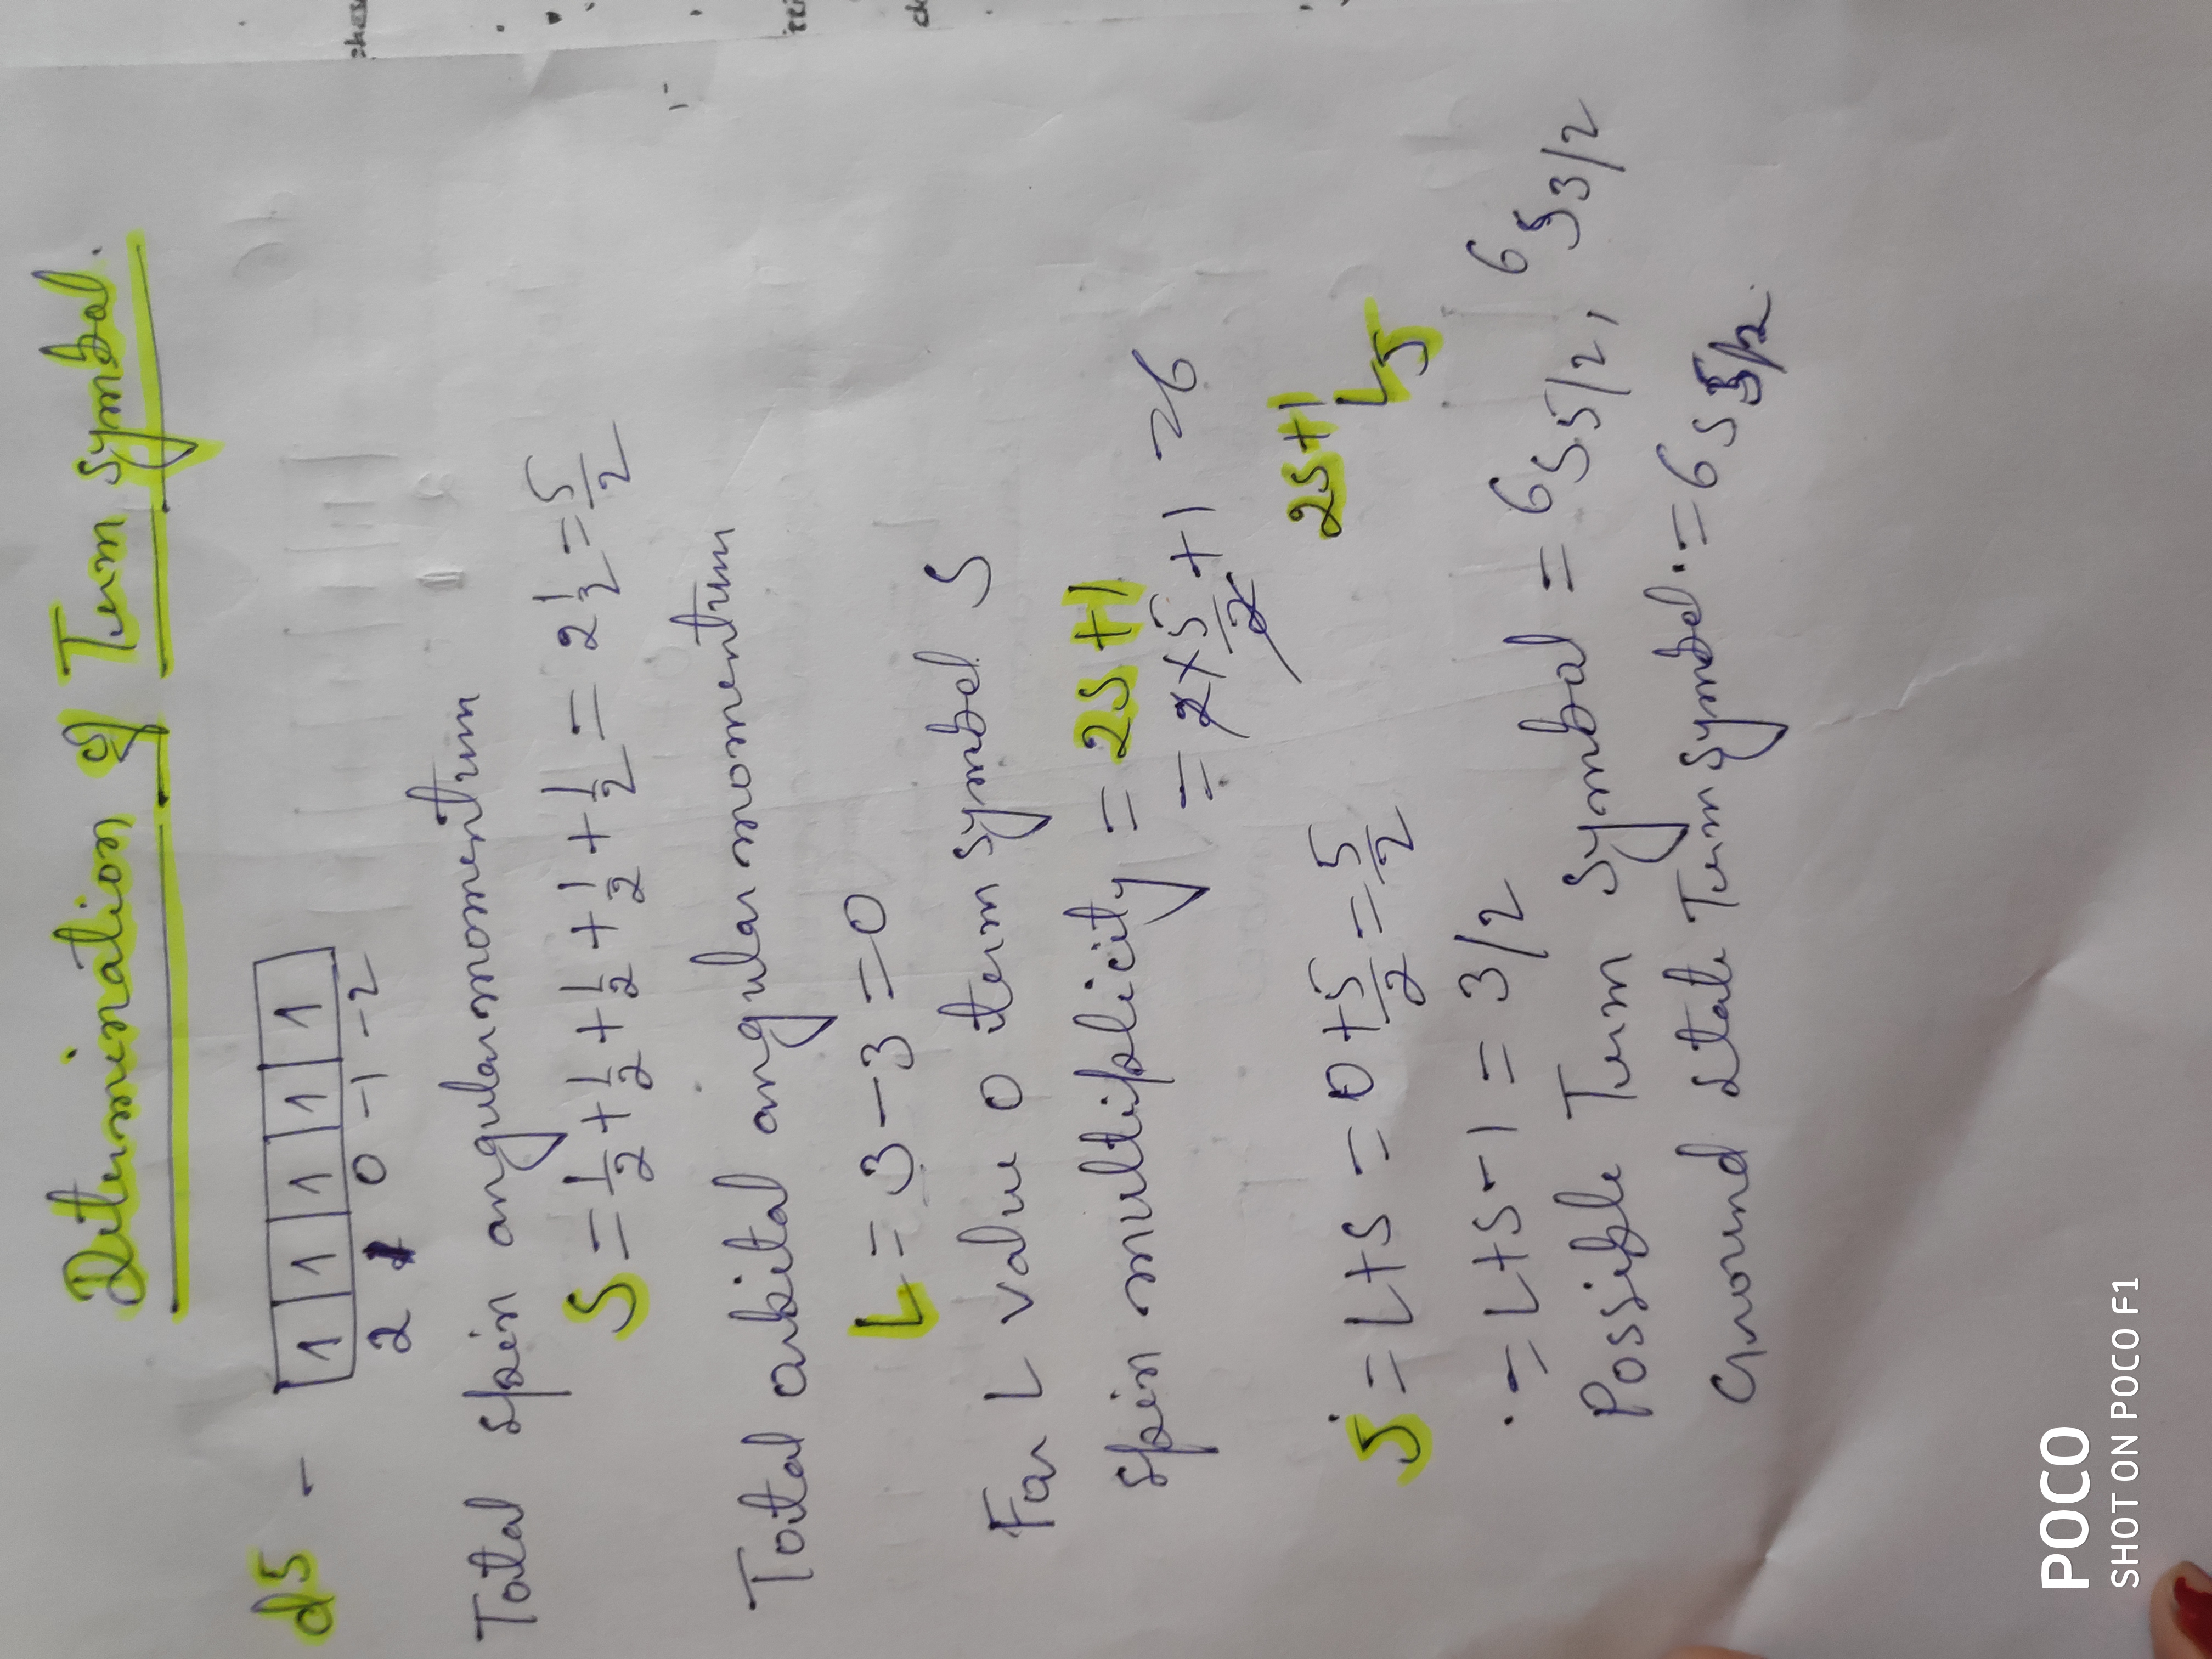 Determination of Term symbol.
d5 - 1 1 1 1 1
2 1 0 -1 -2
Total spin angular momentum
S = 1/2 + 1/2 + 1/2 + 1/2 + 1/2 = 2 1/2 = 5/2
Total orbital angular momentum
L = 3 - 3 = 0
For L value 0 term symbol S
Spin multiplicity = 2S+1
= 2 × 5/2 + 1 = 6
2S+1
LJ
J = L+S = 0 + 5/2 = 5/2
= L+S-1 = 3/2
Possible Term symbol = 6S5/2, 6S3/2
Ground state Term symbol = 6S5/2
POCO
SHOT ON POCO F1